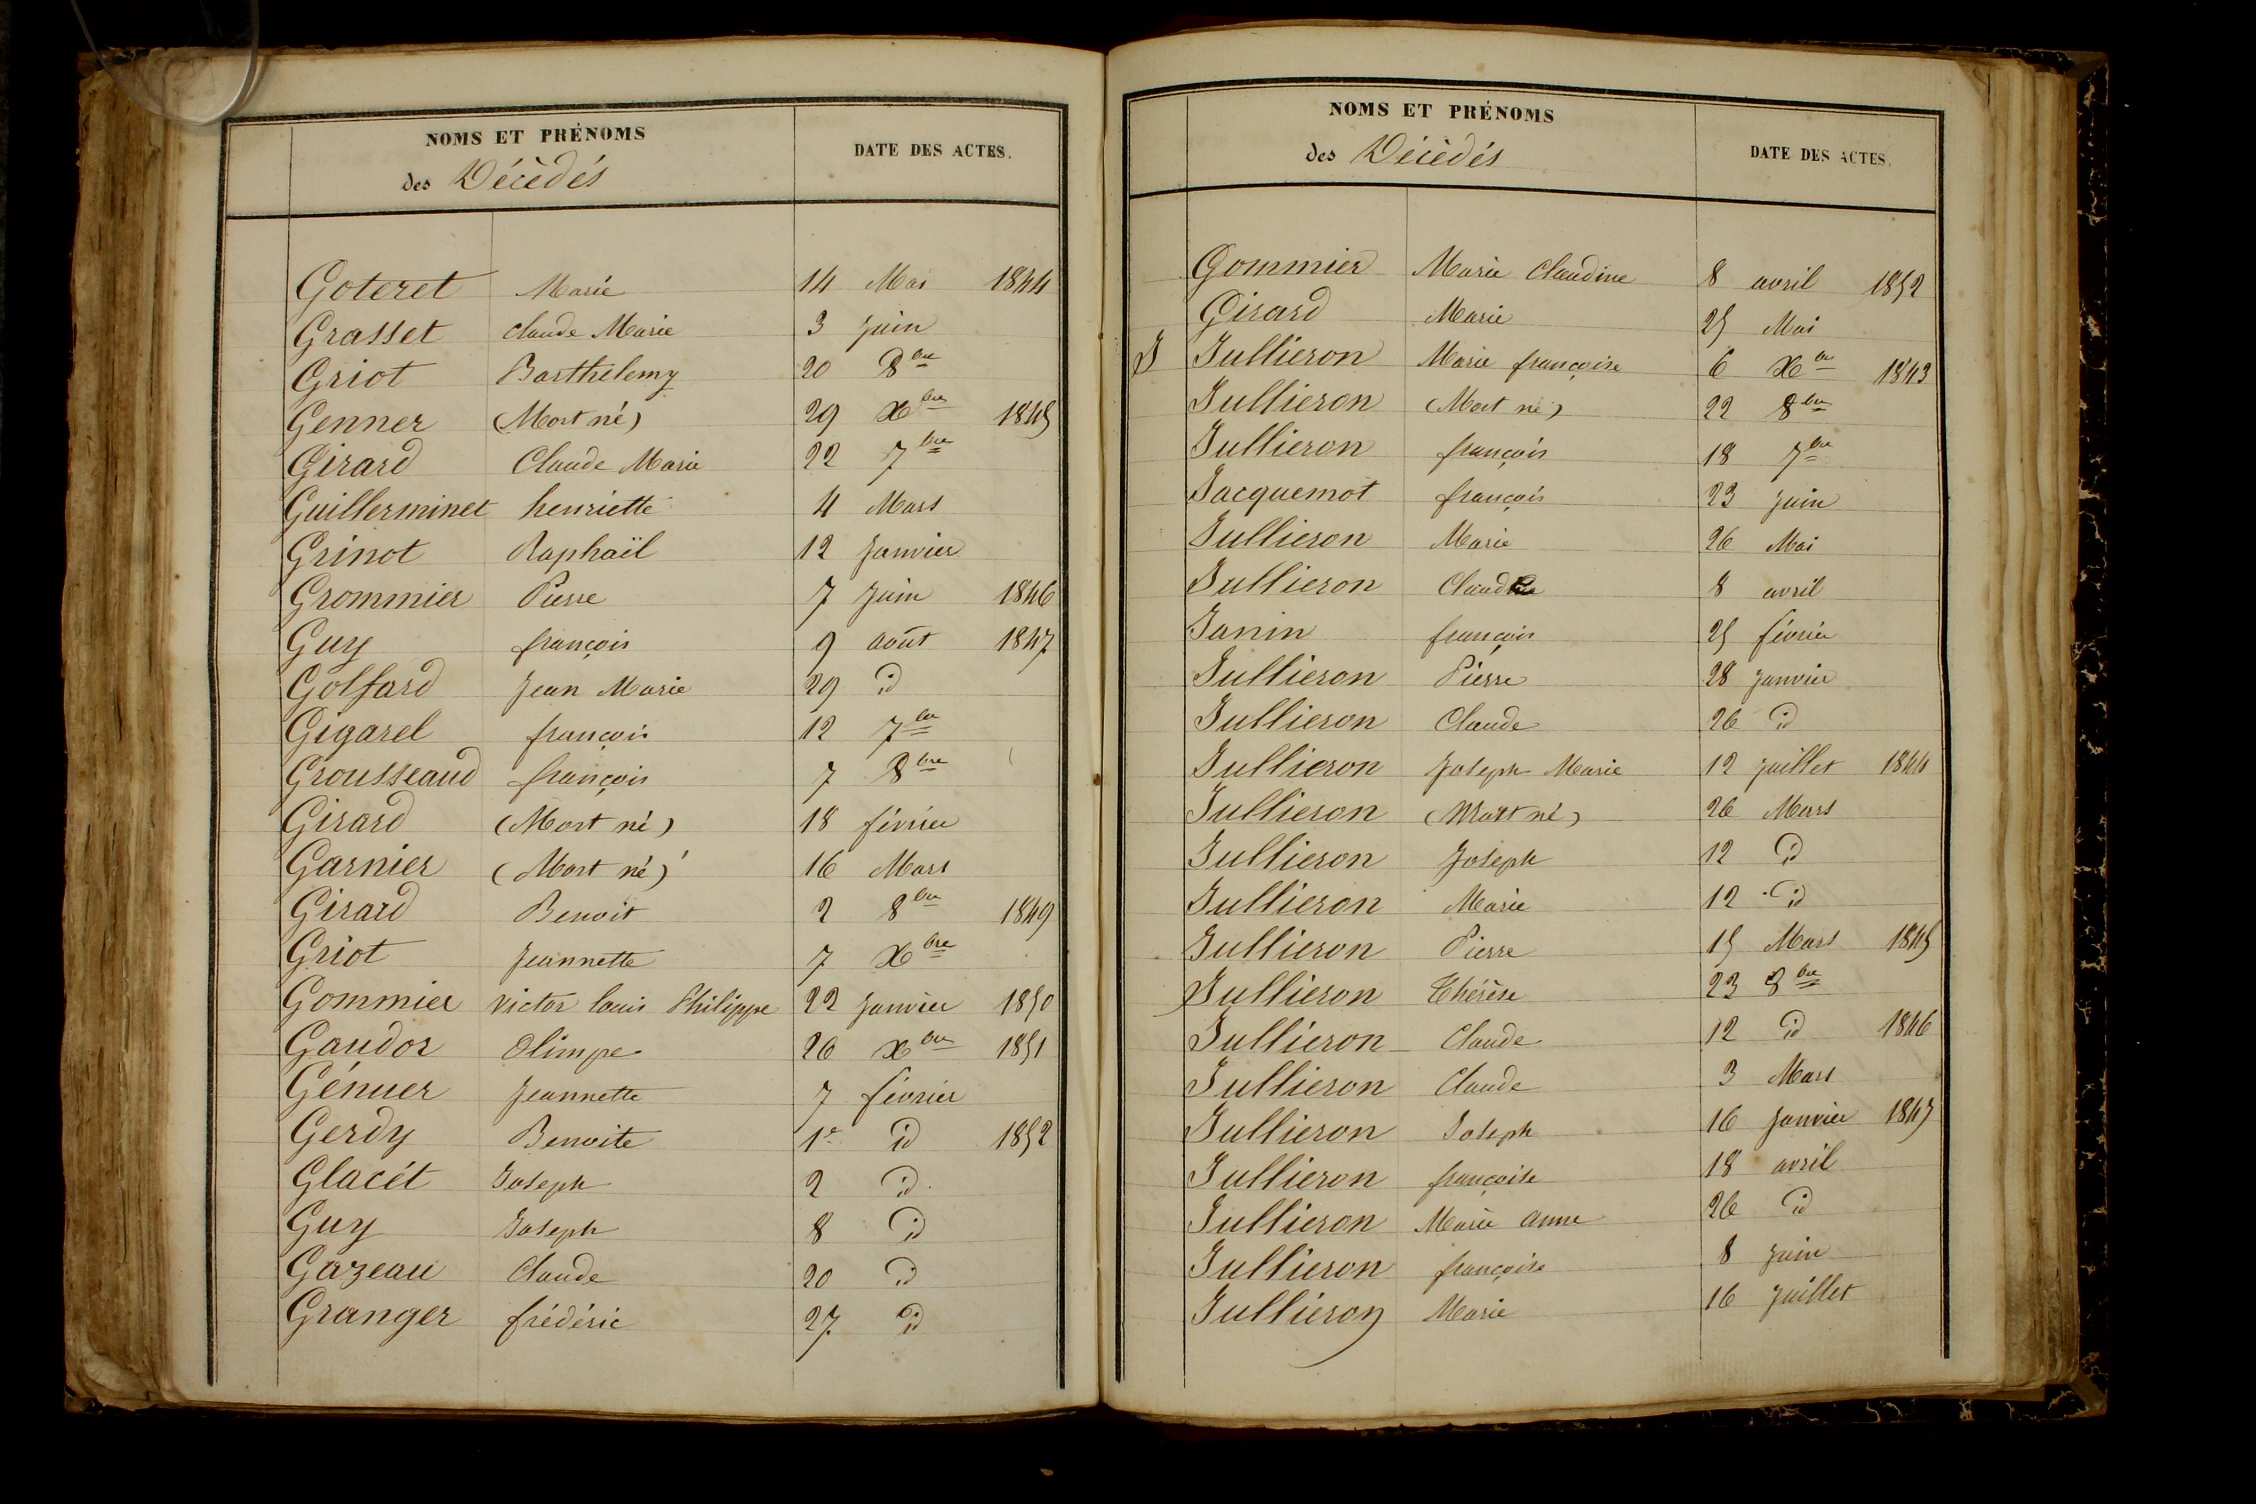 NOMS ET PRÉNOMS
des Décèdés
DATE DES ACTES.
Goteret Marie 14 Mai 1844
Grasset Claude Marie 3 Juin
Griot Barthélemy 20 8bre
Genner (Mort né) 29 Xbre 1845
Girard Claude Marie 22 7bre
Guillerminet henriette 4 Mars
Grinot Raphaïl 12 Janvier
Grommier Pierre 7 Juin 1846
Guy françois 9 août 1847
Golfard Jean Marie 29 id
Gigarel françois 12 7bre
Grousseaud françois 7 8bre
Girard (Mort né) 18 février
Garnier (Mort né) 16 Mars
Girard Benoit 2 8bre 1849
Griot Jeannette 7 Xbre
Gommier Victor louis Philippe 22 Janvier 1850
Gaudor Olimpe 26 Xbre 1851
Génuer Jeannette 7 février
Gerdy Benoite 1er id 1852
Glacét Joseph 2 id
Guy Joseph 8 id
Gazeau Claude 20 id
Granger frédéric 27 id
NOMS ET PRÉNOMS
des Décèdés
DATE DES ACTES.
Gommier Marie Claudine 8 avril 1852
Girard Marie 25 Mai
J Jullieron Marie françoise 6 Xbre 1843
Jullieron (Mort né) 22 8bre
Jullieron françois 18 7bre
Jacquemot françois 23 Juin
Jullieron Marie 26 Mai
Jullieron 8 avril
Janin françois 25 février
Jullieron Pierre 28 Janvier
Jullieron Claude 26 id
Jullieron Joseph Marie 12 Juillet 1844
Jullieron (Mort né) 26 Mars
Jullieron Joseph 12 id
Jullieron Marie 12 id
Jullieron Pierre 15 Mars 1845
Jullieron Thérèse 23 8bre
Jullieron Claude 12 id 1846
Jullieron Claude 3 Mars
Jullieron Joseph 16 Janvier 1847
Jullieron françoise 18 avril
Jullieron Marie anne 26 id
Jullieron françoise 8 Juin
Jullieron Marie 16 Juillet